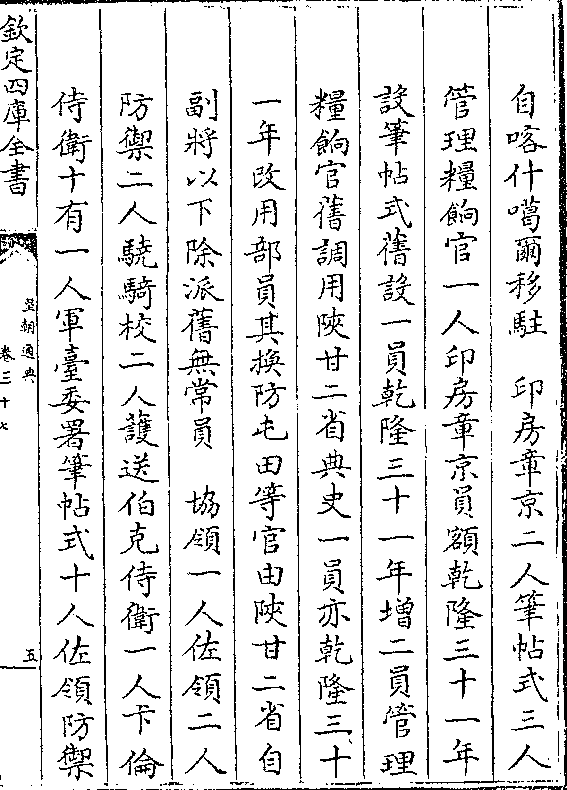 自喀什噶爾移駐　印房章京二人筆帖式三人
管理糧餉官一人印房章京員額乾隆三十一年
設筆帖式舊設一員乾隆三十一年增二員管理
糧餉官舊調用陜甘二省典史一員亦乾隆三十
一年改用部員其換防屯田等官由陜甘二省自
副將以下除派舊無常員　協領一人佐領二人
防禦二人驍騎校二人護送伯克侍衛一人卞倫
侍衛十有一人軍臺委署筆帖式十人佐領防禦
欽定四庫全書
皇朝通典
卷三十七
五